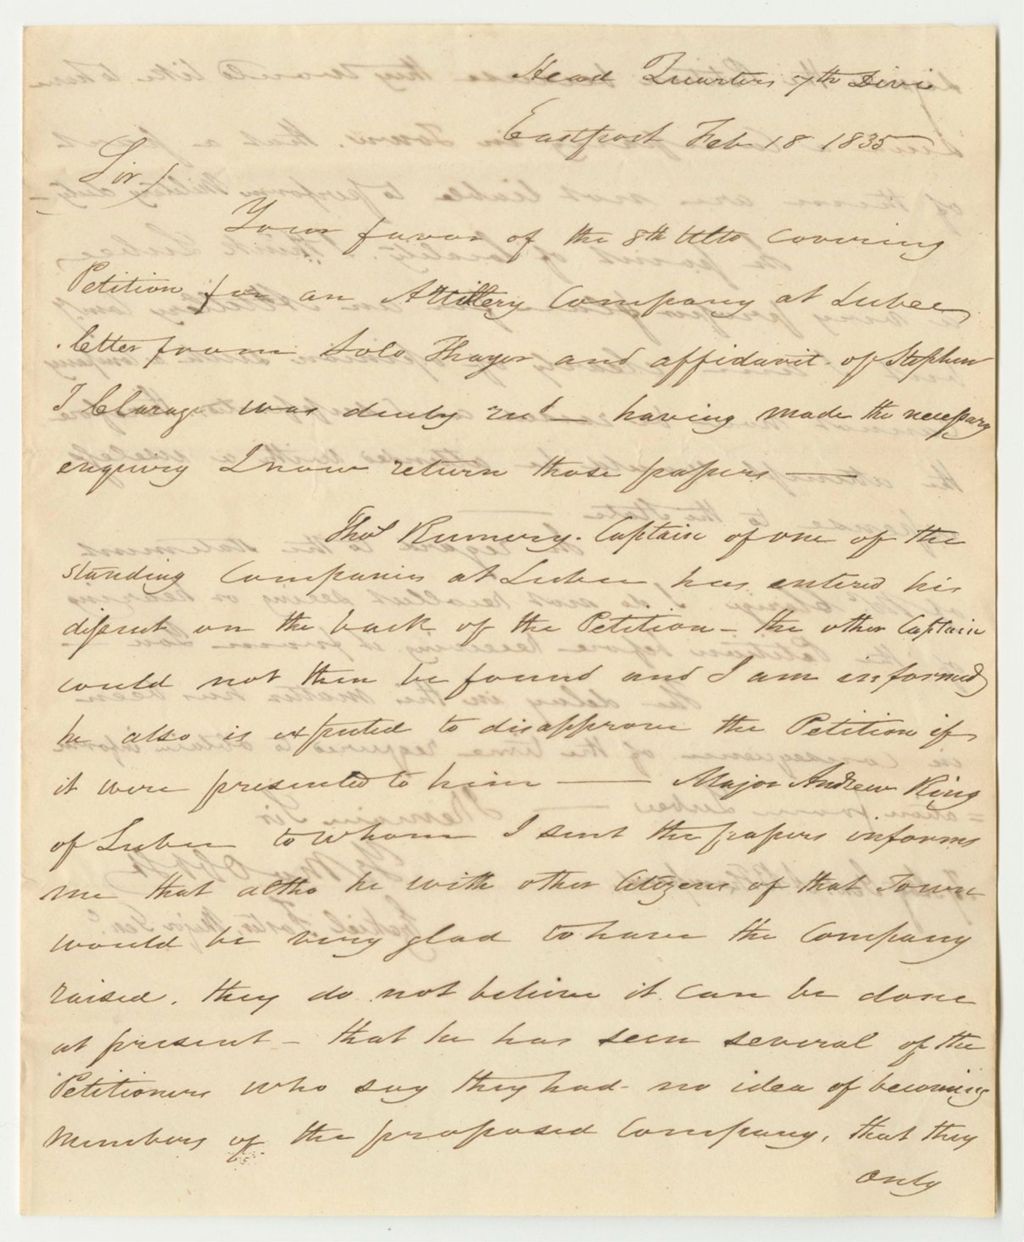 Head Quarters 7th Divi
Eastport Feb 18 1835
Sir/
Your favor of the 8th Ulto covering
Petition for an Attillery Company at Lubec,
letter from Solo Thayer and affidavit of Stephen
I Clarage was duely recd — having made the necessary
enquiry I now return those papers —
Thos Rumery. Captain of one of the
Standing Companies at Lubec, has entered his
dissent on the back of the Petition — the other Captain
could not then be found and I am informed
he also is expected to disapprove the Petition if
it were presented to him — Major Andrew Ring
of Lubec to whom I sent the papers informs
me that altho he with other Citizens of that Town
would be very glad to have the Company
raised, they do not believe it can be done
at present — that he has seen several of the
Petitioners who say they had no idea of becoming
members of the proposed Company, that they
only